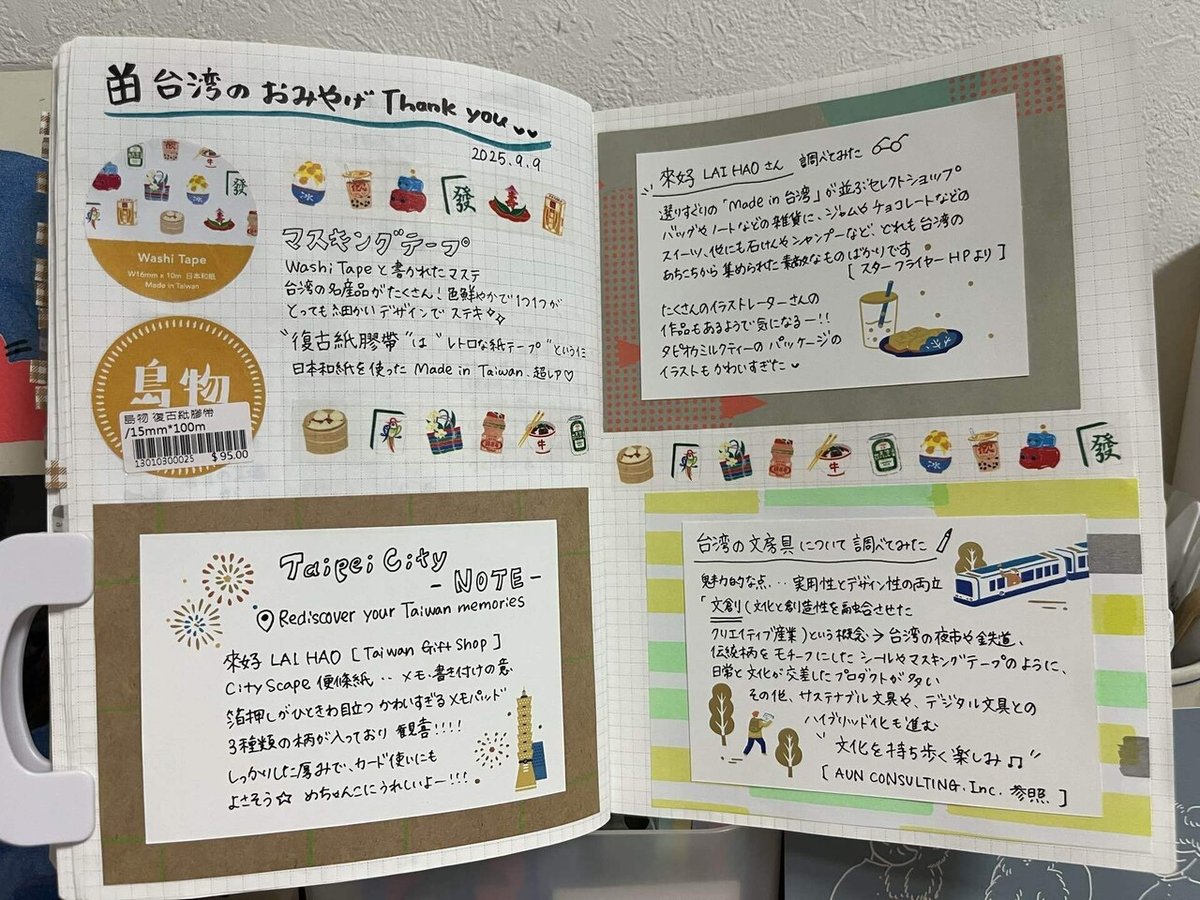 台湾のおみやげ Thank you
2025.9.9
Washi Tape
W16mm x 10m 日本和紙
Made in Taiwan
發
發
マスキングテープ
Washi Tapeと書かれたマステ
台湾の名産品がたくさん！色鮮やかで1つ1つが
とっても細かいデザインでステキ
"復古紙膠帶"は"レトロな紙テープ"という仁
日本和紙を使ったMade in Taiwan.超レア♡
島物
島物 復古紙膠帶
/15mm*100m
13010300025 $95.00
牛
Taipei City
-NOTE-
Rediscover your Taiwan memories
來好 LAI HAO [Taiwan Gift Shop]
City Scape 便條紙‥メモ・書き付けの意
箔押しがひときわ目立つかわいすぎるメモパッド
3種類の柄が入っており 観喜!!!!
しっかりした厚みで、カード使いにも
よさそう☆ めちゃんこにうれしいよー!!!
來好 LAI HAOさん 調べてみた
選りすぐりの「Made in 台湾」が並ぶセレクトショップ
バッグやノートなどの雑貨に、ジャムやチョコレートなどの
スイーツ、他にも石けんやシャンプーなど、どれも台湾の
あちこちから集められた素敵なものばかりです
[スターフライヤーHPより]
たくさんのイラストレーターさんの
作品もあるようで気になるー!!
タピオカミルクティーのパッケージの
イラストもかわいすぎた♥
牛 冰 發
台湾の文房具について調べてみた
魅力的な点‥実用性とデザイン性の両立
「文創(文化と創造性を融合させた
クリエイティブ産業)という概念→台湾の夜市や鉄道、
伝統柄をモチーフにしたシールやマスキングテープのように、
日常と文化が交差したプロダクトが多い
その他、サステナブル文具や、デジタル文具との
ハイブリッド化も進む
"文化を持ち歩く楽しみ♫"
[AUN CONSULTING, Inc. 参照]